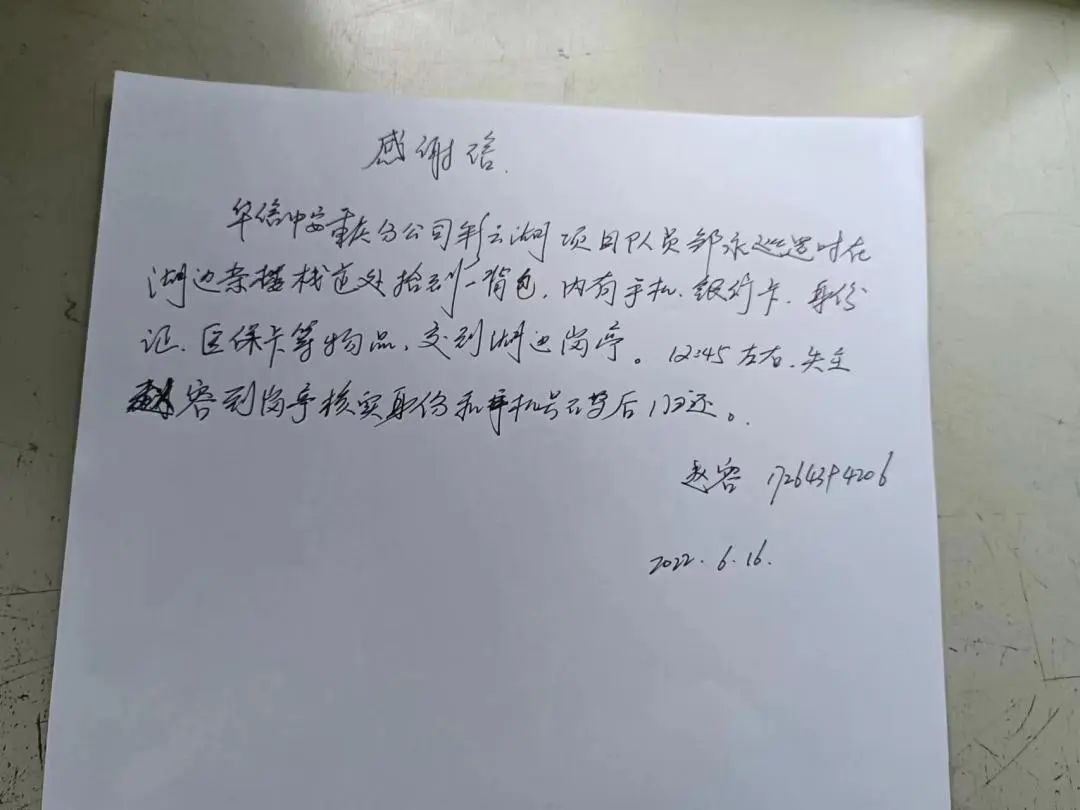 感谢信.
华信中安重庆分公司彩云湖项目队员邹永巡逻时在
湖边茶楼栈道处拾到一背包,内有手机、银行卡、身份
证、医保卡等物品,交到湖边岗亭。12:45左右,失主
赵容到岗亭核实身份和手机号后归还。
赵容
2022.6.16.